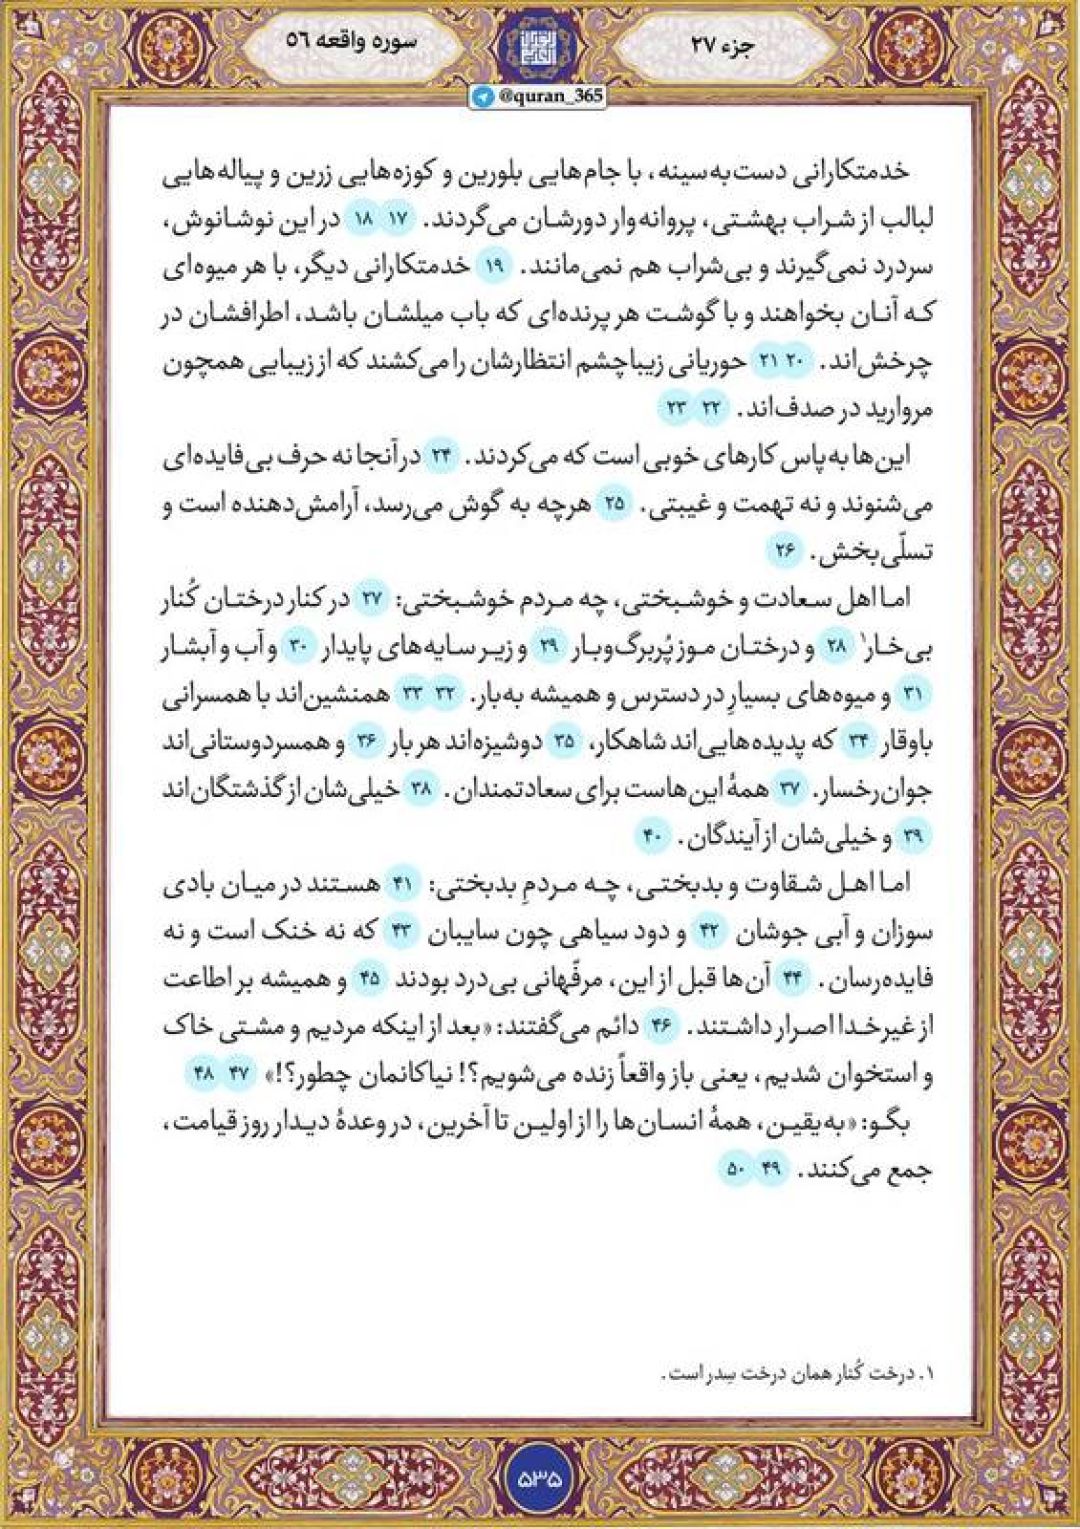 جزء ۲۷
سوره واقعه ۵۶
@quran_365
خدمتکارانی دست‌به‌سینه، با جام‌هایی بلورین و کوزه‌هایی زرین و پیاله‌هایی
لبالب از شراب بهشتی، پروانه‌وار دورشان می‌گردند. ۱۷ ۱۸ در این نوشانوش،
سردرد نمی‌گیرند و بی‌شراب هم نمی‌مانند. ۱۹ خدمتکارانی دیگر، با هر میوه‌ای
که آنان بخواهند و با گوشت هر پرنده‌ای که باب میلشان باشد، اطرافشان در
چرخش‌اند. ۲۰ ۲۱ حوریانی زیباچشم انتظارشان را می‌کشند که از زیبایی همچون
مروارید در صدف‌اند. ۲۲ ۲۳
این‌ها به‌پاس کارهای خوبی است که می‌کردند. ۲۴ در آنجا نه حرف بی‌فایده‌ای
می‌شنوند و نه تهمت و غیبتی. ۲۵ هرچه به گوش می‌رسد، آرامش‌دهنده است و
تسلّی‌بخش. ۲۶
اما اهل سعادت و خوشبختی، چه مردم خوشبختی: ۲۷ در کنار درختان کُنار
بی‌خار۱ ۲۸ و درختان موز پُربرگ‌وبار ۲۹ و زیر سایه‌های پایدار ۳۰ و آب و آبشار
۳۱ و میوه‌های بسیارِ در دسترس و همیشه به‌بار. ۳۲ ۳۳ همنشین‌اند با همسرانی
باوقار ۳۴ که پدیده‌هایی‌اند شاهکار، ۳۵ دوشیزه‌اند هر بار ۳۶ و همسردوستانی‌اند
جوان‌رخسار. ۳۷ همهٔ این‌هاست برای سعادتمندان. ۳۸ خیلی‌شان از گذشتگان‌اند
۳۹ و خیلی‌شان از آیندگان. ۴۰
اما اهل شقاوت و بدبختی، چه مردمِ بدبختی: ۴۱ هستند در میان بادی
سوزان و آبی جوشان ۴۲ و دود سیاهی چون سایبان ۴۳ که نه خنک است و نه
فایده‌رسان. ۴۴ آن‌ها قبل از این، مرفّهانی بی‌درد بودند ۴۵ و همیشه بر اطاعت
از غیرخدا اصرار داشتند. ۴۶ دائم می‌گفتند: «بعد از اینکه مردیم و مشتی خاک
و استخوان شدیم، یعنی باز واقعاً زنده می‌شویم؟! نیاکانمان چطور؟!» ۴۷ ۴۸
بگو: «به‌یقین، همهٔ انسان‌ها را از اولین تا آخرین، در وعدهٔ دیدار روز قیامت،
جمع می‌کنند. ۴۹ ۵۰
۱. درخت کُنار همان درخت سِدر است.
۵۳۵